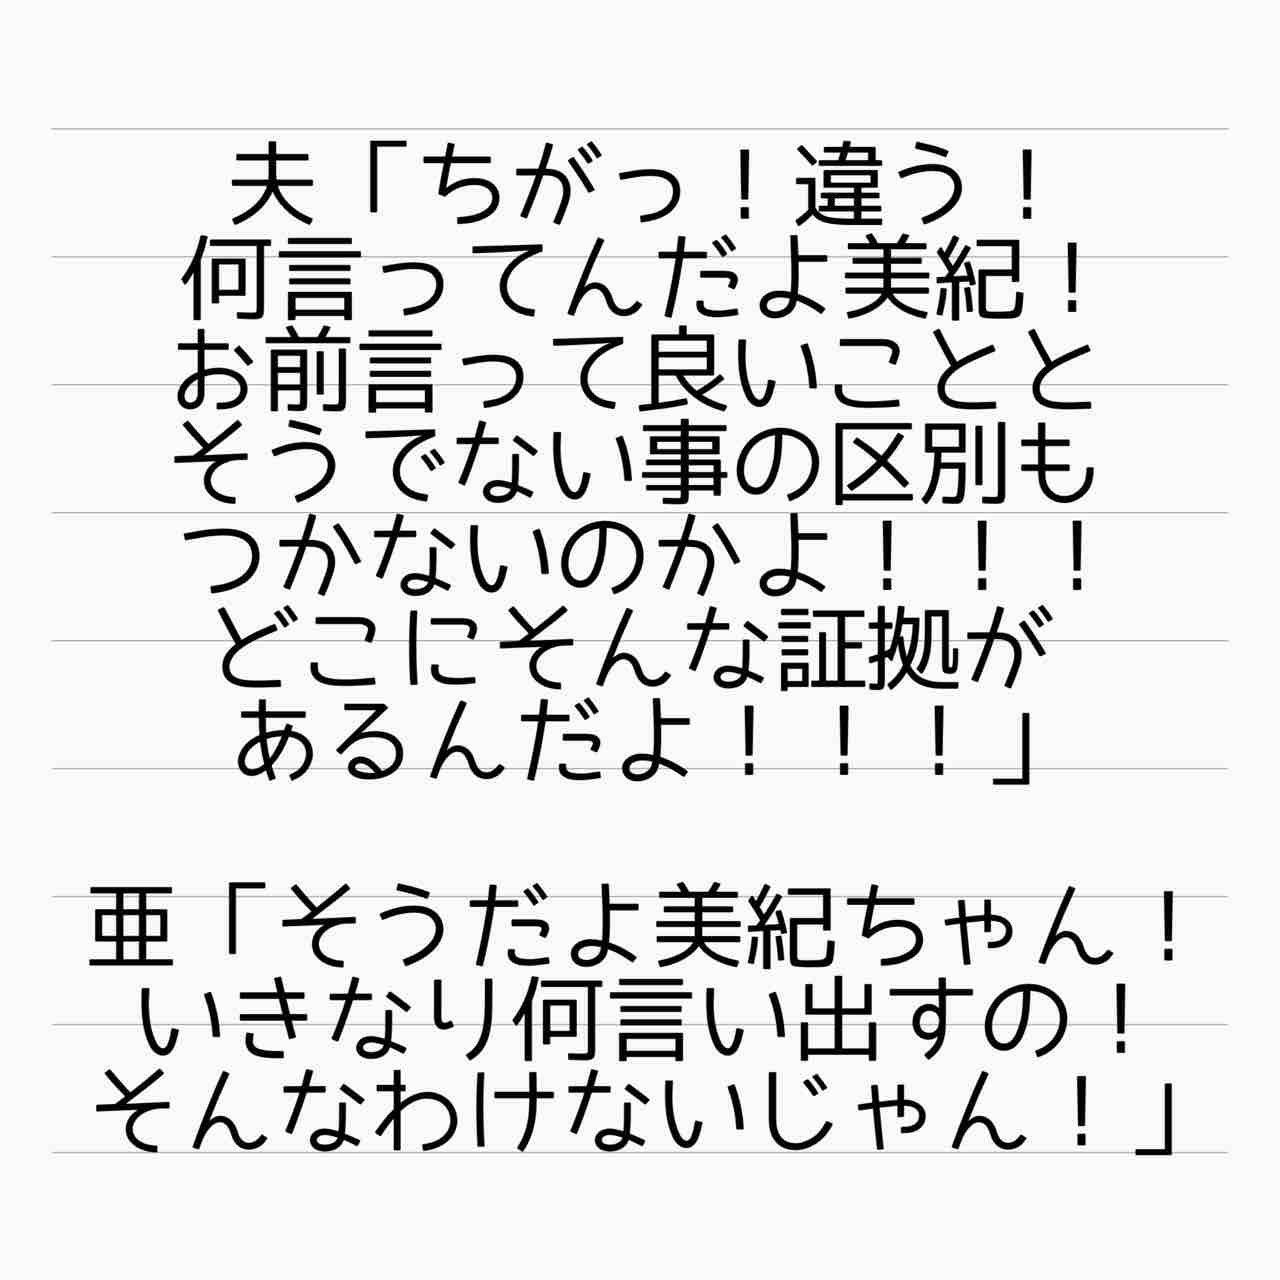 夫「ちがっ！違う！
何言ってんだよ美紀！
お前言って良いことと
そうでない事の区別も
つかないのかよ！！！
どこにそんな証拠が
あるんだよ！！！」
亜「そうだよ美紀ちゃん！
いきなり何言い出すの！
そんなわけないじゃん！」